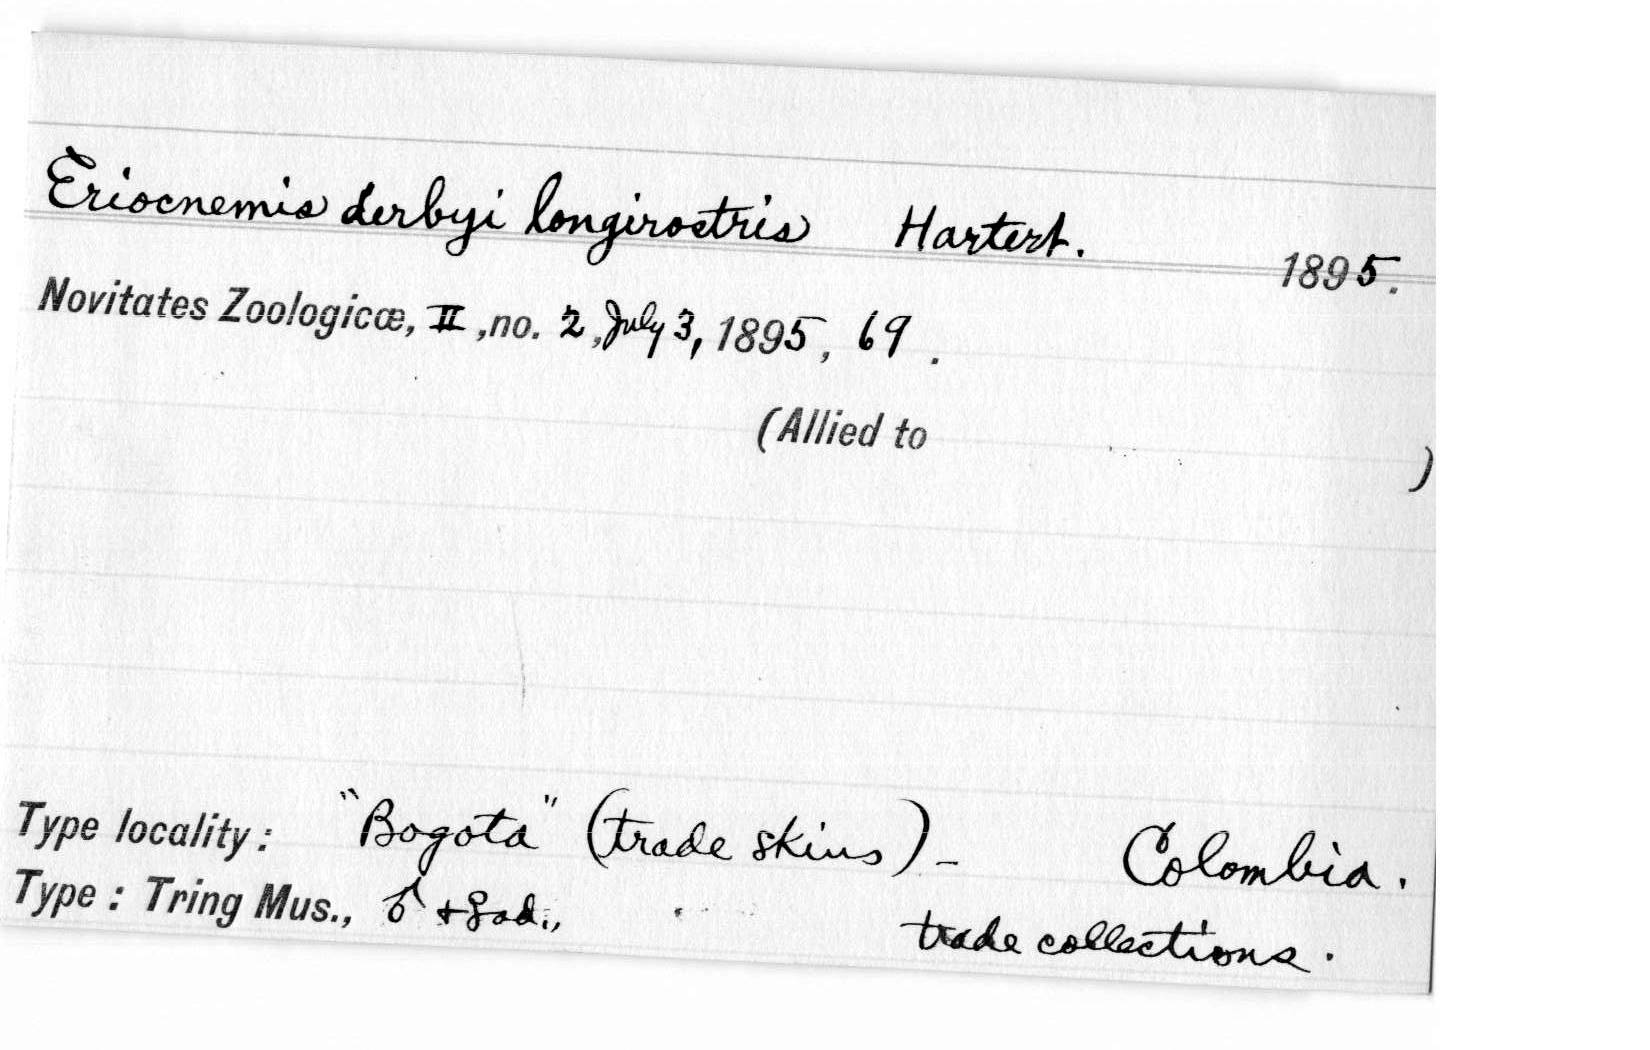 Eriocnemis derbyi longirostris Hartert. 1895.
Novitates Zoologicæ, II, no. 2, July 3, 1895, 69.
(Allied to )
Type locality: "Bogota" (trade skins) - Colombia.
Type: Tring Mus., ♂ + ♀ ad., trade collections.